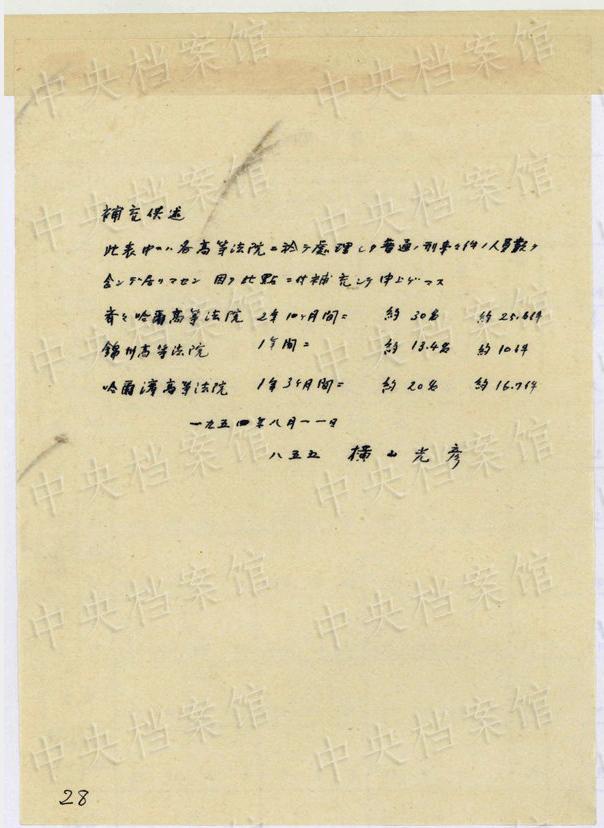 補充供述
此表中ニハ各高等法院ニ於テ處理シタ普通ノ刑事々件ノ人員数ヲ
含ンデ居リマセン 因テ此點ニ付補充シテ申上ゲマス
齊々哈爾高等法院 2年10ヶ月間ニ 約30名 約25.6件
錦州高等法院 1年間ニ 約13.4名 約10件
哈爾濱高等法院 1年3ヶ月間ニ 約20名 約16.7件
一九五四年八月一一日
八五五 横山光彦
28
中央档案馆